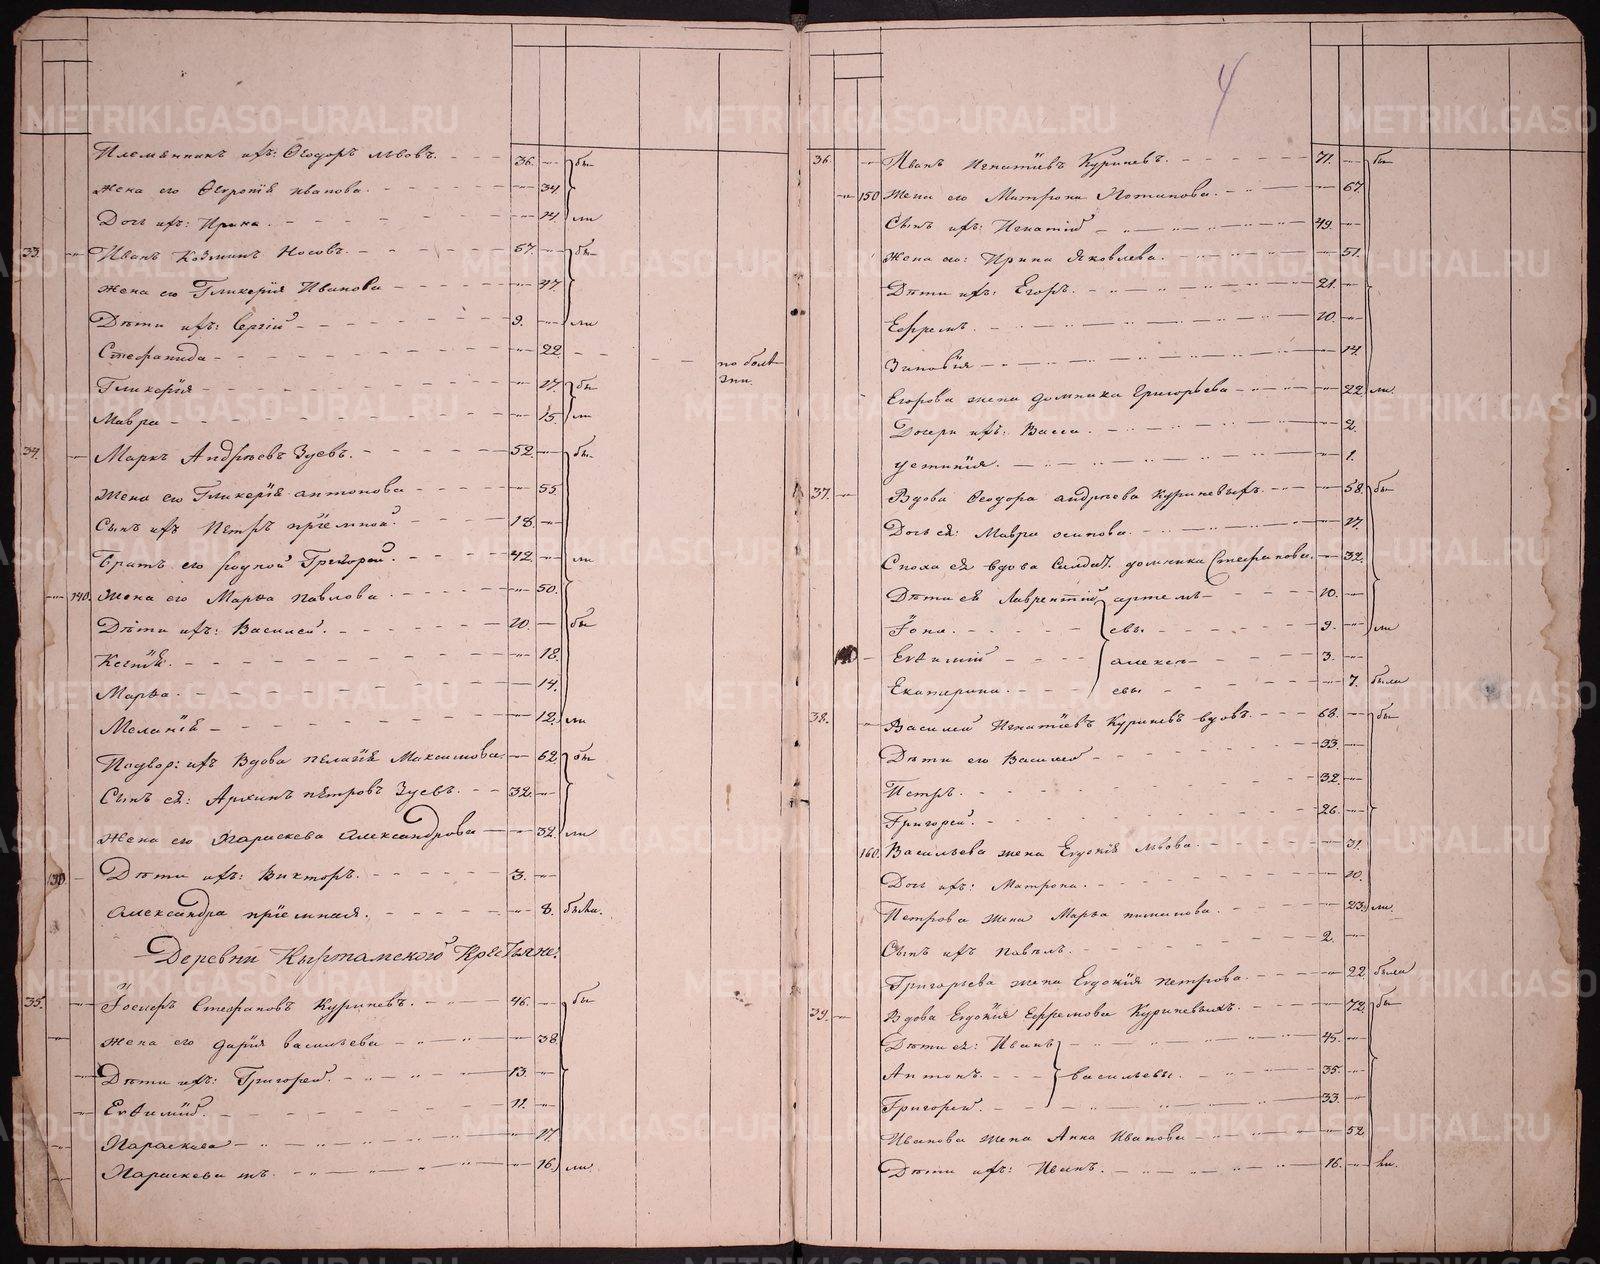 Племянникъ ихъ: Ѳеодоръ Львовъ. 36. бы
Жена его Ѳевронія Иванова. 34
Дочь ихъ: Ирина. 14. ли
33. Иванъ Козминъ Носовъ. 67. бы
Жена его Гликерія Иванова 47.
Дѣти ихъ: Сергій 9. ли
Стефанида 22. по болѣ
зни.
Гликерія 17. бы
Мавра 15. ли
34. Маркъ Андрѣевъ Зуевъ. 52. бы
Жена его Гликерія Антонова 55.
Сынъ ихъ Петръ пріемной. 18.
Братъ его родной Григорей. 42. ли
140. Жена его Марѳа Павлова 50.
Дѣти ихъ: Василей. 20. бы
18.
Марѳа. 14.
Меланія 12. ли
Подвор: ихъ Вдова Пелагія Максимова. 62. бы
Сынъ ея: Архипъ Петровъ Зуевъ. 32.
Жена его Параскева Александрова 32. ли
130 Дѣти ихъ: Викторъ. 3.
Александра пріемная. 8. была.
Деревни Кыртамского Крестьяне:
35. Стефановъ Куриневъ. 46. бы
Жена его Дарія Васильева 38.
Дѣти ихъ: Григорей. 13.
Евѳимій. 11.
Параскева 17.
Параскева тъ. 16. ли.
4
36. Иванъ Игнатіевъ Куриневъ. 71. бы
150 Жена его Матрона Потапова. 67.
Сынъ ихъ: Игнатій 49.
Жена его: Ирина Яковлева. 51.
Дѣти ихъ: Егоръ. 21.
Ефремъ. 10.
Зиновія 14.
Егорова жена Домника Григорьева 22. ли.
Дочери ихъ: Васса. 2.
Устинія. 1.
37. Вдова Ѳеодора Андреева Куриневыхъ. 58. бы
Дочь ея: Мавра Осипова. 17.
Сноха ея вдова Солдат. Домника Стефанова. 32.
Дѣти ея Лаврентій Артемь- 10.
Іона. евы. 9. ли
Евѳимій Алексе- 3.
Екатерина. евы 7. была
38. Василей Игнатіевъ Куриневъ вдовъ. 68. бы
Дѣти его Василей 33.
Петръ. 32.
Григорей. 26.
160. Васильева жена Евдокія Львова. 31.
Дочь ихъ: Матрона. 10.
Петрова жена Марѳа Пименова. 23. ли.
Сынъ ихъ Павелъ. 2.
Григорьева жена Евдокія Петрова. 22. была
39. Вдова Евдокія Ефремова Куриневыхъ. 72. бы
Дѣти ея: Иванъ 45.
Антонъ. Васильевы. 35.
Григорей. 33.
Иванова жена Анна Иванова 52.
Дѣти ихъ: Иванъ. 16. ли.
METRIKI.GASO-URAL.RU